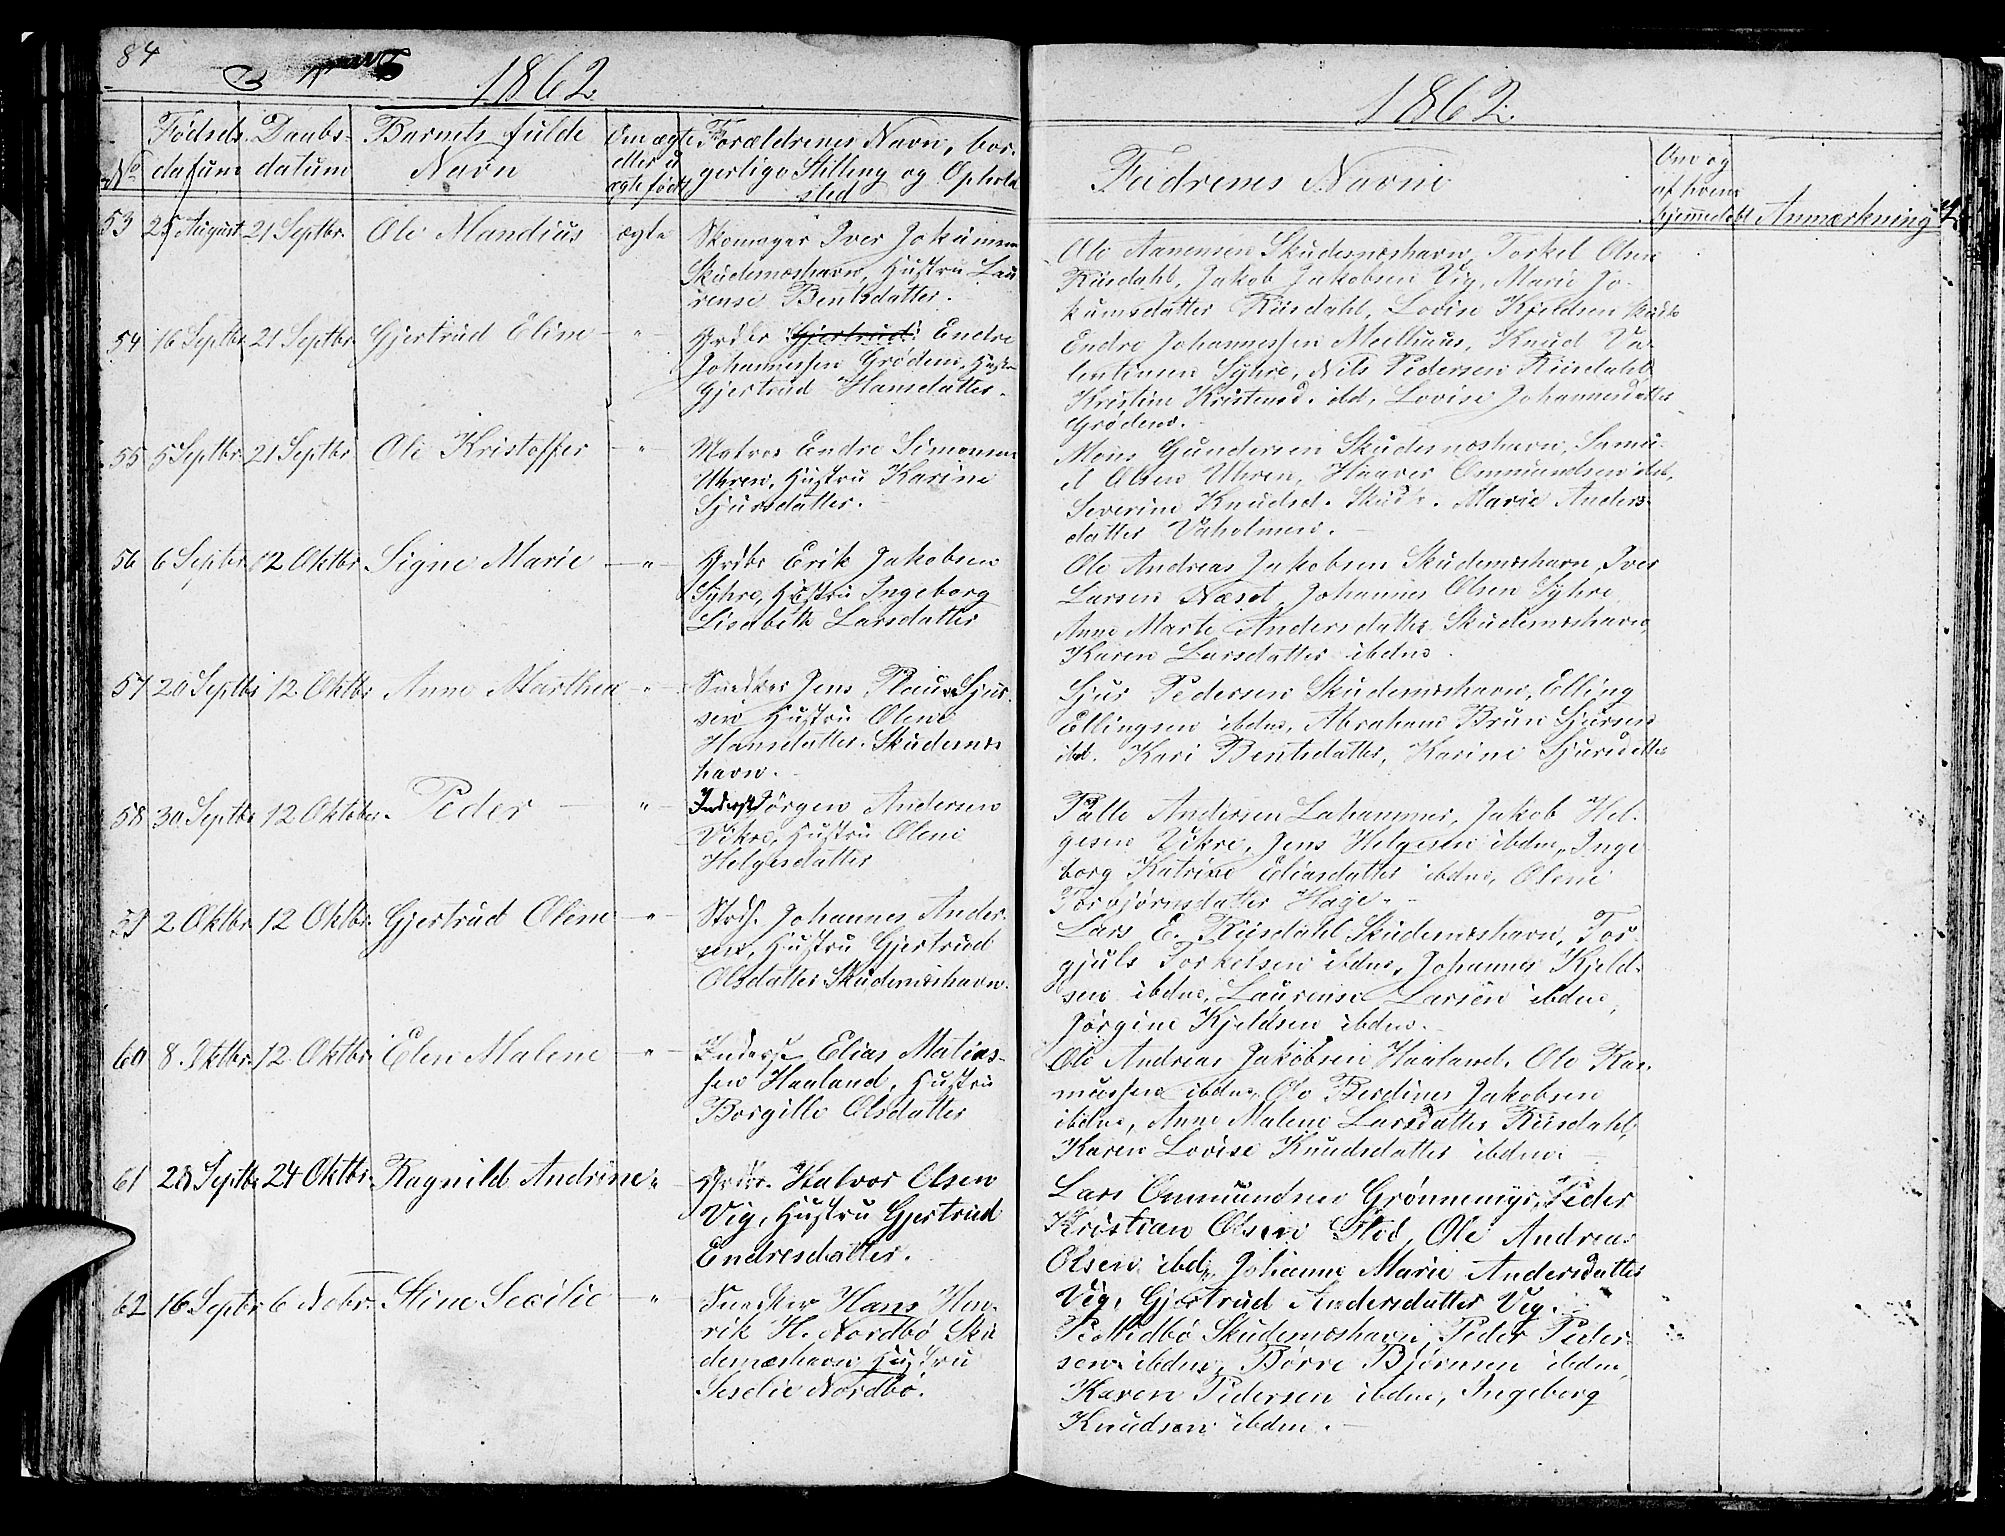 84
1862
No
Fødsels-
datum
Daabs-
datum
Barnets fulde
Navn
Om ægte
eller u
ægte født
Forældrenes Navn, bor-
gerlige Stilling og Ophold
sted
53 25 August 21 Septbr. Ole Mandius ægte
Skomager Iver Jokumsen
Skudenæshavn, Hustru Lau
rense Bentsdatter.
54 16 Septbr 21 Septbr Gjertrud Eline - " -
Grdbr Gjertrud Endre
Johannessen Grødem, Hustr
Gjertrud Hansdatter.
55 5 Septbr 21 Septbr Ole Kristoffer - " -
Matros Endre Simonsen
Uhren, Hustru Karine
Sjursdatter.
56 6 Septbr 12 Oktbr Signe Marie - " -
Grdbr Erik Jakobsen
Syhre, Hustru Ingeborg
Lisabeth Larsdatter
57 20 Septbr 12 Oktbr Anne Marthea - " -
Snedker Jens Plaus Sjur-
sen Hustru Olene
Hansdatter. Skudenæs
havn.
58 30 Septbr 12 Oktober Peder - " -
Inderst Jörgen Andersen
Vikre, Hustru Olene
Helgesdatter
59 2 Oktbr. 12 Oktbr. Gjertrud Olene - " -
Johannes Ander-
sen, Hustru Gjertrud
Olsdatter Skudenæshavn.
60 8. Oktbr. 12 Oktbr. Elen Malene - " -
Inderst Elias Matias-
sen Haaland, Hustru
Borgille Olsdatter
61 28 Septbr 24 Oktbr. Ragnild Andrine " -
Grdbr. Halvor Olsen
Vig, Hustru Gjertrud
Endresdatter.
62 16 Septbr 6 Nobr. Stine Secilie - " -
Snedker Hans Hen-
rik H. Nordbö Sku
denæshavn Hustru
Seselie Nordbö.
1862.
Fadrenes Navne
Om og
af hvem
hjemmedøbt
Anmærkning
Ole Aanensen Skudenæshavn, Torkel Olsen
Risdahl, Jakob Jakobsen Vig, Marie Jo-
kumsdatter Risdahl, Lovise Kjeldsen
Endre Johannessen Meelhuus, Knud Va-
lentinsen Syhre, Nils Pedersen Risdahl
Kristine Kristensd. ibd, Lovise Johannesdatter
Grødem.
Möns Gundersen Skudenæshavn, Samu-
el Olsen Uhren, Haaver Ommundsen ibd,
Severine Knudsd. Skud. Marie Anders-
datter Vaholmen.
Ole Andreas Jakobsen Skudenæshavn, Iver
Larsen Næset, Johannes Olsen Syhre
Anne Marte Andersdatter Skudenæshavn,
Karen Larsdatter ibdm.
Sjur Pedersen Skudenæshavn, Elling
Ellingsen ibdm, Abraham Brun Sjursen
ibd. Kari Bentsdatter, Karine Sjursdatter
Palle Andersen Lahammer, Jakob Hel-
gesen Vikre, Jens Helgesen ibdm, Inge
borg Katrine Eliasdatter ibdm, Olene
Torbjørnsdatter Hage.
Lars E. Risdahl Skudenæshavn, Tor-
gjuls Torkelsen ibdm, Johannes Kjeld-
sen ibdm, Laurense Larsen ibdm,
Jörgine Kjeldsen ibdm.
Ole Andreas Jakobsen Haaland, Ole Ras-
mussen ibdm, Ole Berdines Jakobsen
ibdm, Anne Malene Larsdatter Risdahl,
Karen Lovise Knudsdatter ibdm.
Lars Ommundsen Grönnemyr, Peder
Kristian Olsen Stod, Ole Andreas
Olsen ibd, Johanne Marie Andersdatter
Vig, Gjertrud Andersdatter Vig.
P. Midbö Skudenæshavn, Peder Peder-
sen ibdm, Börre Björnsen ibdm,
Karen Pedersen ibdm, Ingeborg
Knudsen ibdm.